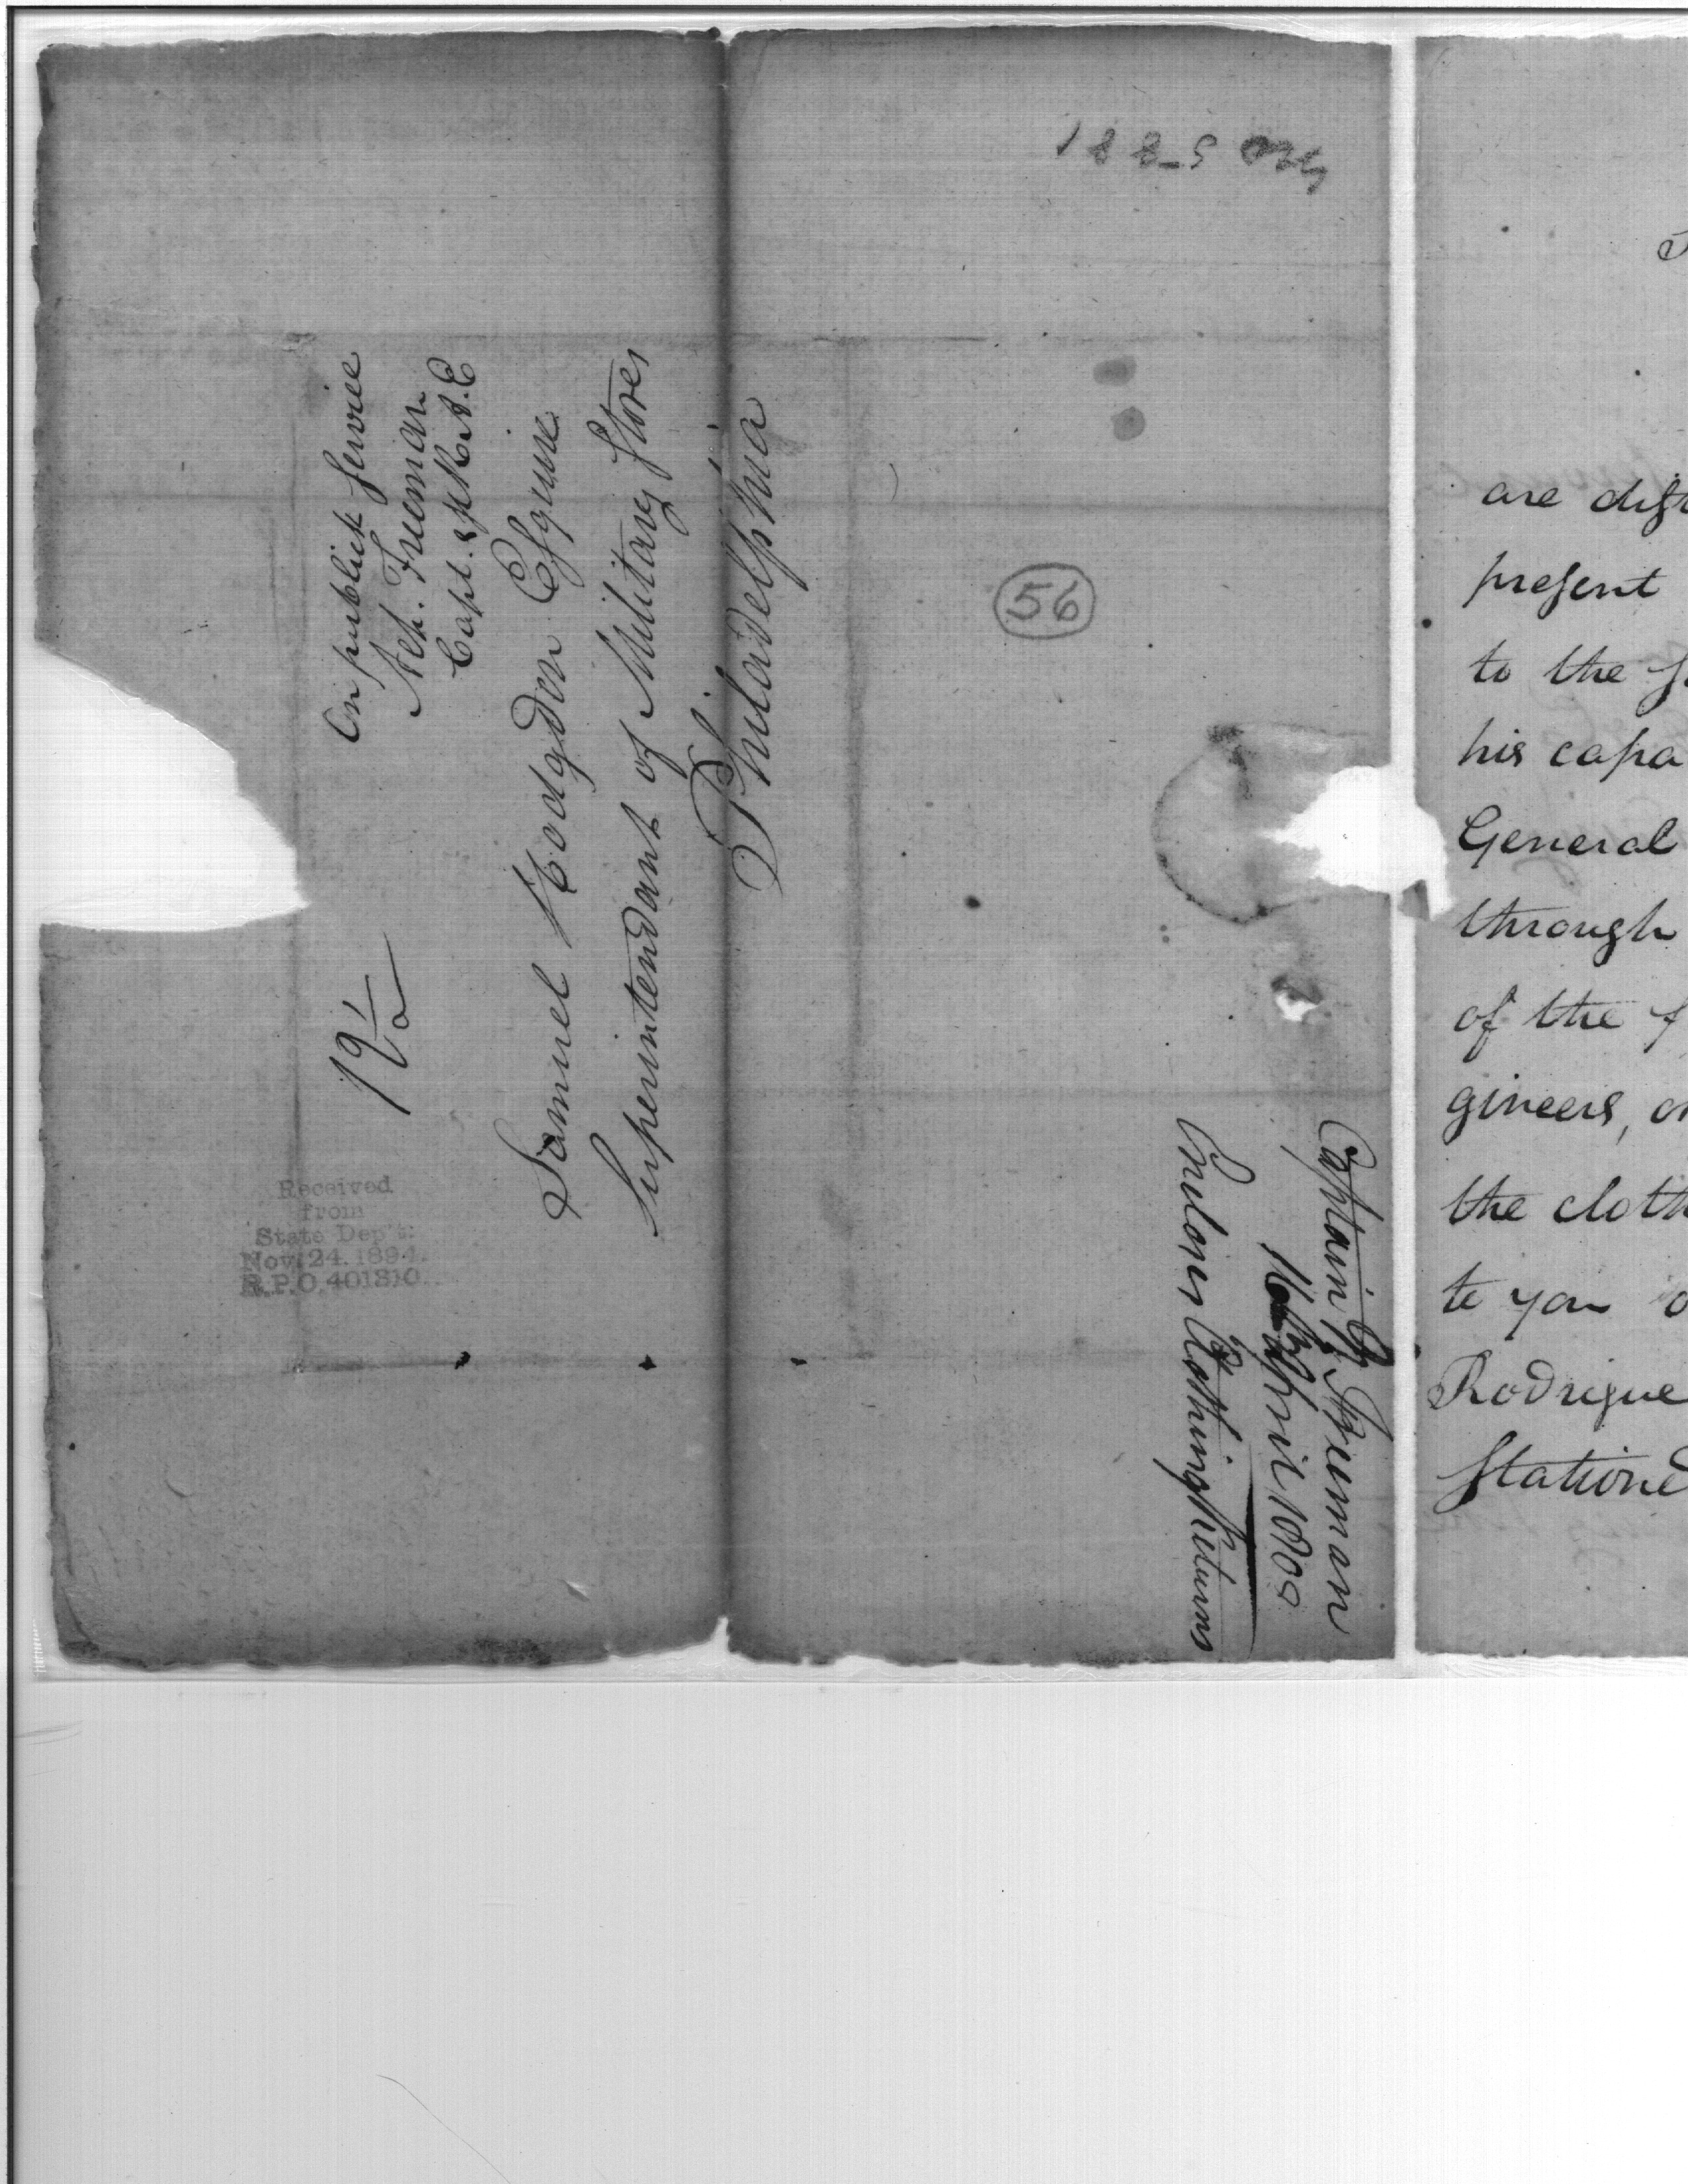 On publick Service
Neh. Freeman
Capt. 1st Rt. A. E
12 1/2
Samuel Hodgdon Esquire
Superintendant of Military Stores
Philadelphia
Received
from
State Dep't.
Nov. 24. 1894.
R.P.O. 401310.
56
Captain N. Freeman
April 1800
Encloses Clothing Returns
are dist
present
to the
his capa
General
through
of the
gineers, or
the cloth
to you
Rodrigue
Statione